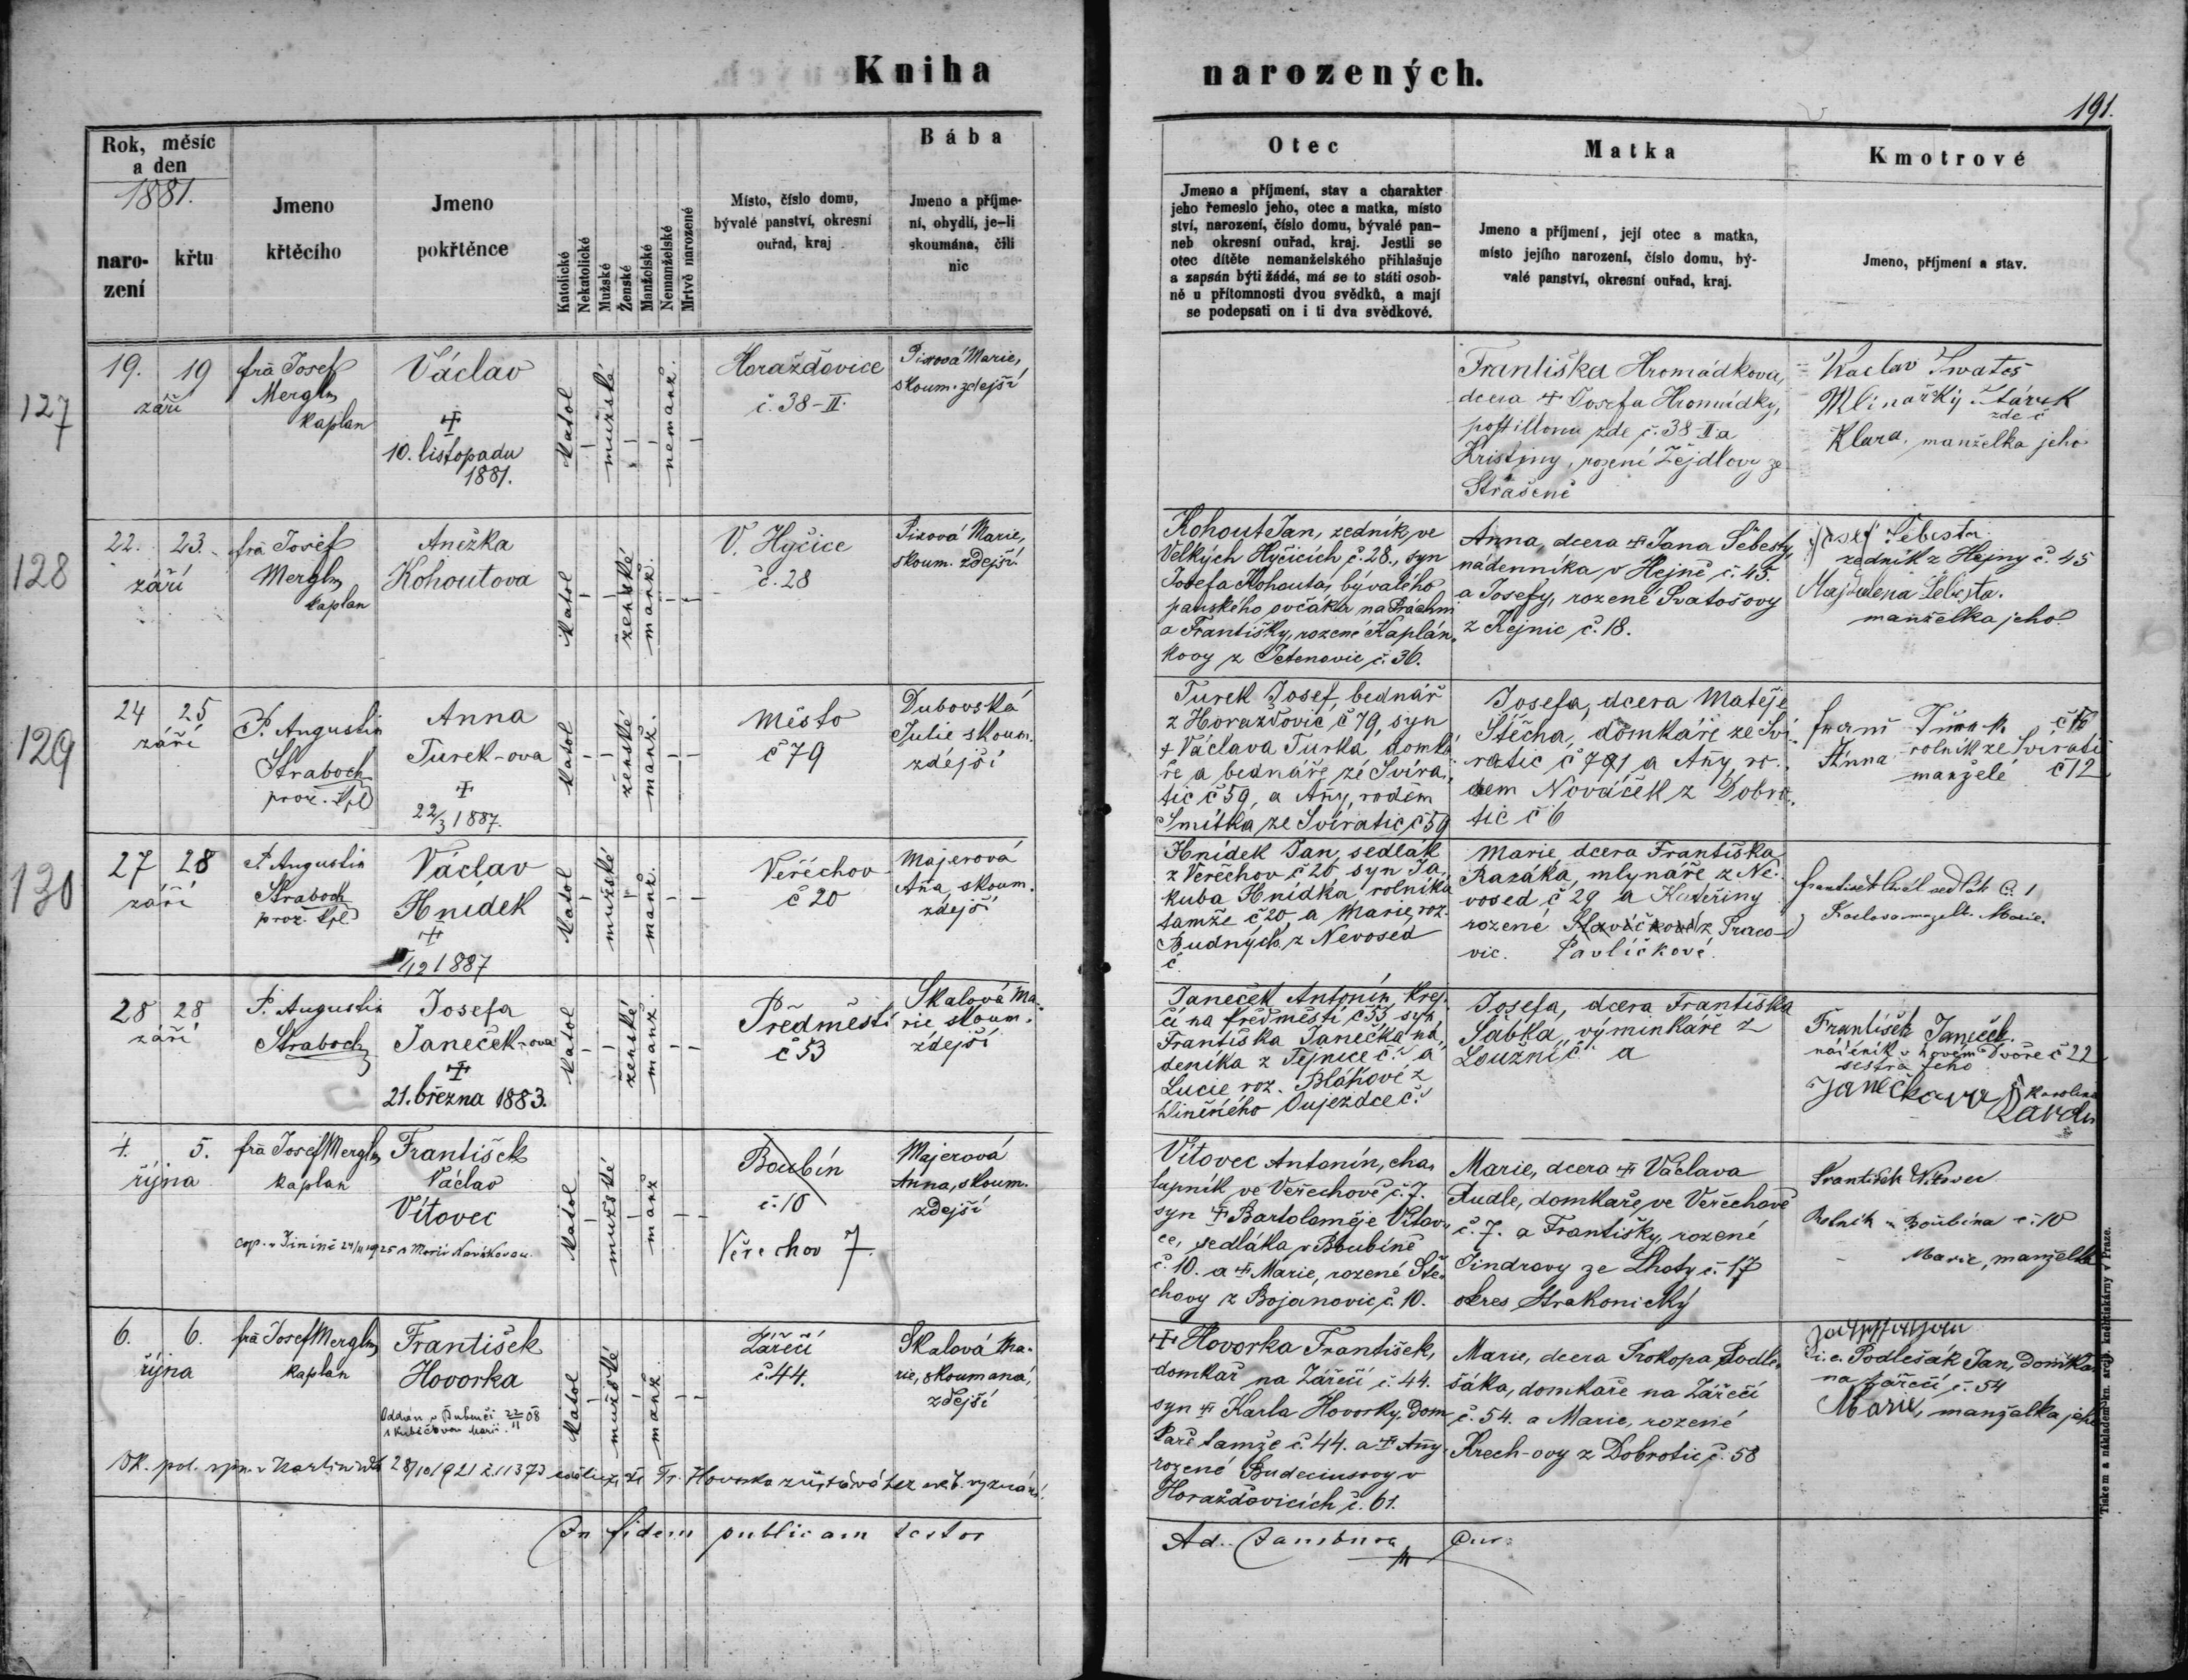 Kniha narozených.
191.
Rok, měsíc
a den
1881.
naro-
zení
křtu
Jmeno
křtěcího
Jmeno
pokřtěnce
Katolické
Nekatolické
Mužské
Ženské
Manželské
Nemanželské
Mrtvě narozené
Místo, číslo domu,
bývalé panství, okresní
ouřad, kraj
Bába
Jmeno a příjme-
ní, obydlí, je-li
skoumána, čili
nic
Otec
Jmeno a příjmení, stav a charakter
jeho řemeslo jeho, otec a matka, místo
ství, narození, číslo domu, bývalé pan-
neb okresní ouřad, kraj. Jestli se
otec dítěte nemanželského přihlašuje
a zapsán býti žádá, má se to státi osob-
ně u přítomnosti dvou svědků, a mají
se podepsati on i ti dva svědkové.
Matka
Jmeno a příjmení, její otec a matka,
místo jejího narození, číslo domu, bý-
valé panství, okresní ouřad, kraj.
Kmotrové
Jmeno, příjmení a stav.
127
19. 19
září
fra Josef
Mergl
kaplan
Václav
+
10. listopadu
1881.
Katol
mužské
nemanž.
Horažďovice
č. 38-II.
Pixová Marie,
skoum. zdejší
Františka Hromádkova,
dcera + Josefa Hromádky,
postillona zde č. 38 II a
Kristiny, rozené Žejdlovy ze
Strašeně
Klara, manželka jeho
128
22. 23.
září
fra Josef
Mergl
kaplan
Anežka
Kohoutova
Katol
ženské
manž.
V. Hyčice
č. 28
Pixová Marie,
skoum. zdejší
Kohout Jan, zedník, ve
Velkých Hyčicích č. 28., syn
Josefa Kohouta, bývalého
panského ovčáka na Práchni
a Františky, rozené Kaplán-
kovy z Tetenovic č. 36.
Anna, dcera + Jana Šebesty,
nádenníka v Hejné č. 45.
a Josefy, rozené Svatošovy
z Kejnic č. 18.
Josef Šebesta
zedník z Hejny č. 45
Majdalena Šebesta.
manželka jeho
129
24 25
září
P. Augustin
Straboch
proz. kpl
Anna
Turek-ova
+
22/3 1887.
Katol
ženské
manž.
Město
č 79
Dubovská
Julie skoum.
zdejší
Turek Josef, bednář
z Horažďovic, č 79, syn
+ Václava Turka, domká
ře a bednáře ze Svíra-
tic č 59, a Anny, rodem
Smitka ze Svíratic č 59
Josefa, dcera Matěje
Štěcha, domkáře ze Sví-
ratic č 71 a Anny, ro-
dem Nováček z Dobro-
tic č 6
rolník ze Svíratic
Anna
manželé č 12
130
27 28
září
P. Augustin
Straboch
proz. kpl.
Václav
Hnídek
+
/12 1887
Katol
mužské
manž.
Veřechov
č 20
Majerová
Anna, skoum.
zdejší
Hnídek Jan, sedlák
z Veřechov č 20, syn Ja-
kuba Hnídka, rolníka
tamže č 20, a Marie, roz.
Budných z Nevosed
č.
Marie, dcera Františka
Razáka, mlynáře z Ne-
vosed č 29 a Kateřiny
rozené Slavíčkové z Praco-
vic. Pavlíčkové.
28 28
září
P. Augustin
Straboch
Josefa
Janeček-ova
+
21. března 1883.
Katol
ženské
manž.
Předměstí
č 53
Skalová Ma-
rie, skoum.
zdejší
Janeček Antonín, krej-
čí na předměstí č 53 syn
Františka Janečka ná-
deníka z Tejnice č. a
Lucie roz. Bláhové z
hliněného Oujezdce č.
Josefa, dcera Františka
Šabka, výminkáře z
Loužnič. a
František Janeček
nádeník v novém Dvoře č 22
sestra jeho
Janečkova Karolina
4. 5.
října
fra Josef Mergl
kaplan
František
Václav
Vítovec
cop. v Jinině 24/11 1925 s Marií Novákovou.
Katol
mužské
manž
Boubín
č. 10
Veřechov 7.
Majerová
Anna, skoum.
zdejší
Vítovec Antonín, cha-
lupník ve Veřechově č. 7.
syn + Bartoloměje Vítov-
ce, sedláka v Boubíně
č. 10. a + Marie, rozené Ště-
chovy z Bojanovic, č. 10.
Marie, dcera + Václava
Rudle, domkaře ve Veřechově
č. 7. a Františky, rozené
Jindrovy ze Lhoty č. 17
okres Strakonický
František Vítovec
Rolník z Boubína č. 10
Marie, manželka
6. 6.
října
fra Josef Mergl
kaplan
František
Hovorka
Oddán v Bubenči 22/II 08
s Kubíčkovou Marií.
Katol
mužské
manž.
Zářečí
č. 44.
Skalová Ma-
rie, skoumaná,
zdejší
+ Hovorka František,
domkař na Zářečí č. 44.
syn + Karla Hovorky, dom-
kaře tamže č. 44. a + Anny
rozené Budeciusovy v
Horažďovicích č. 61.
Marie, dcera Prokopa Podle-
šáka, domkaře na Zářečí
č. 54. a Marie, rozené
Krech-ovy z Dobrotic č. 58
i. e. Podlešák Jan, Domkař
na Zářečí č. 54
Marie, manželka jeho
Ok. pol. spr. v 28/10 1921 č. 11373 že Fr. Hovorka zůstává bez vyznání.
In fidem publicam testor
Ad. Jambura
Tiskem a nákladem kn. arcib. knihtiskárny v Praze.